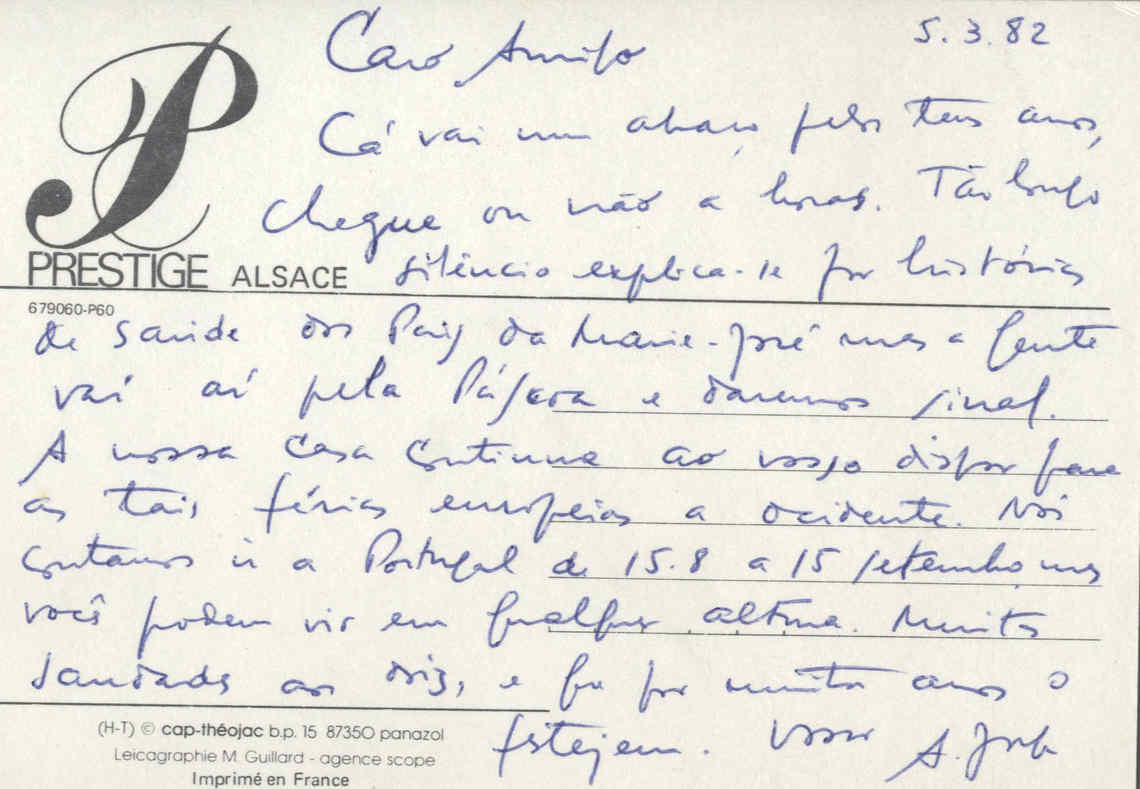 5.3.82
Caro Amigo
Cá vai um abraço pelos teus anos,
chegue ou não a horas. Tão longo
silêncio explica-se por histórias
PRESTIGE ALSACE
679060-P60
de saúde dos Pais da Marie-José mas a gente
vai aí pela Páscoa e daremos sinal.
A nossa casa continua ao vosso dispor para
as tais férias europeias a ocidente. Nós
contamos ir a Portugal de 15.8 a 15 setembro, mas
vocês podem vir em qualquer altura. Muitas
saudades aos dois, e que por muitos anos o
festejem. Vosso A. José
(H-T) © cap-théojac b.p. 15 87350 panazol
Leicagraphie M. Guillard - agence scope
Imprimé en France